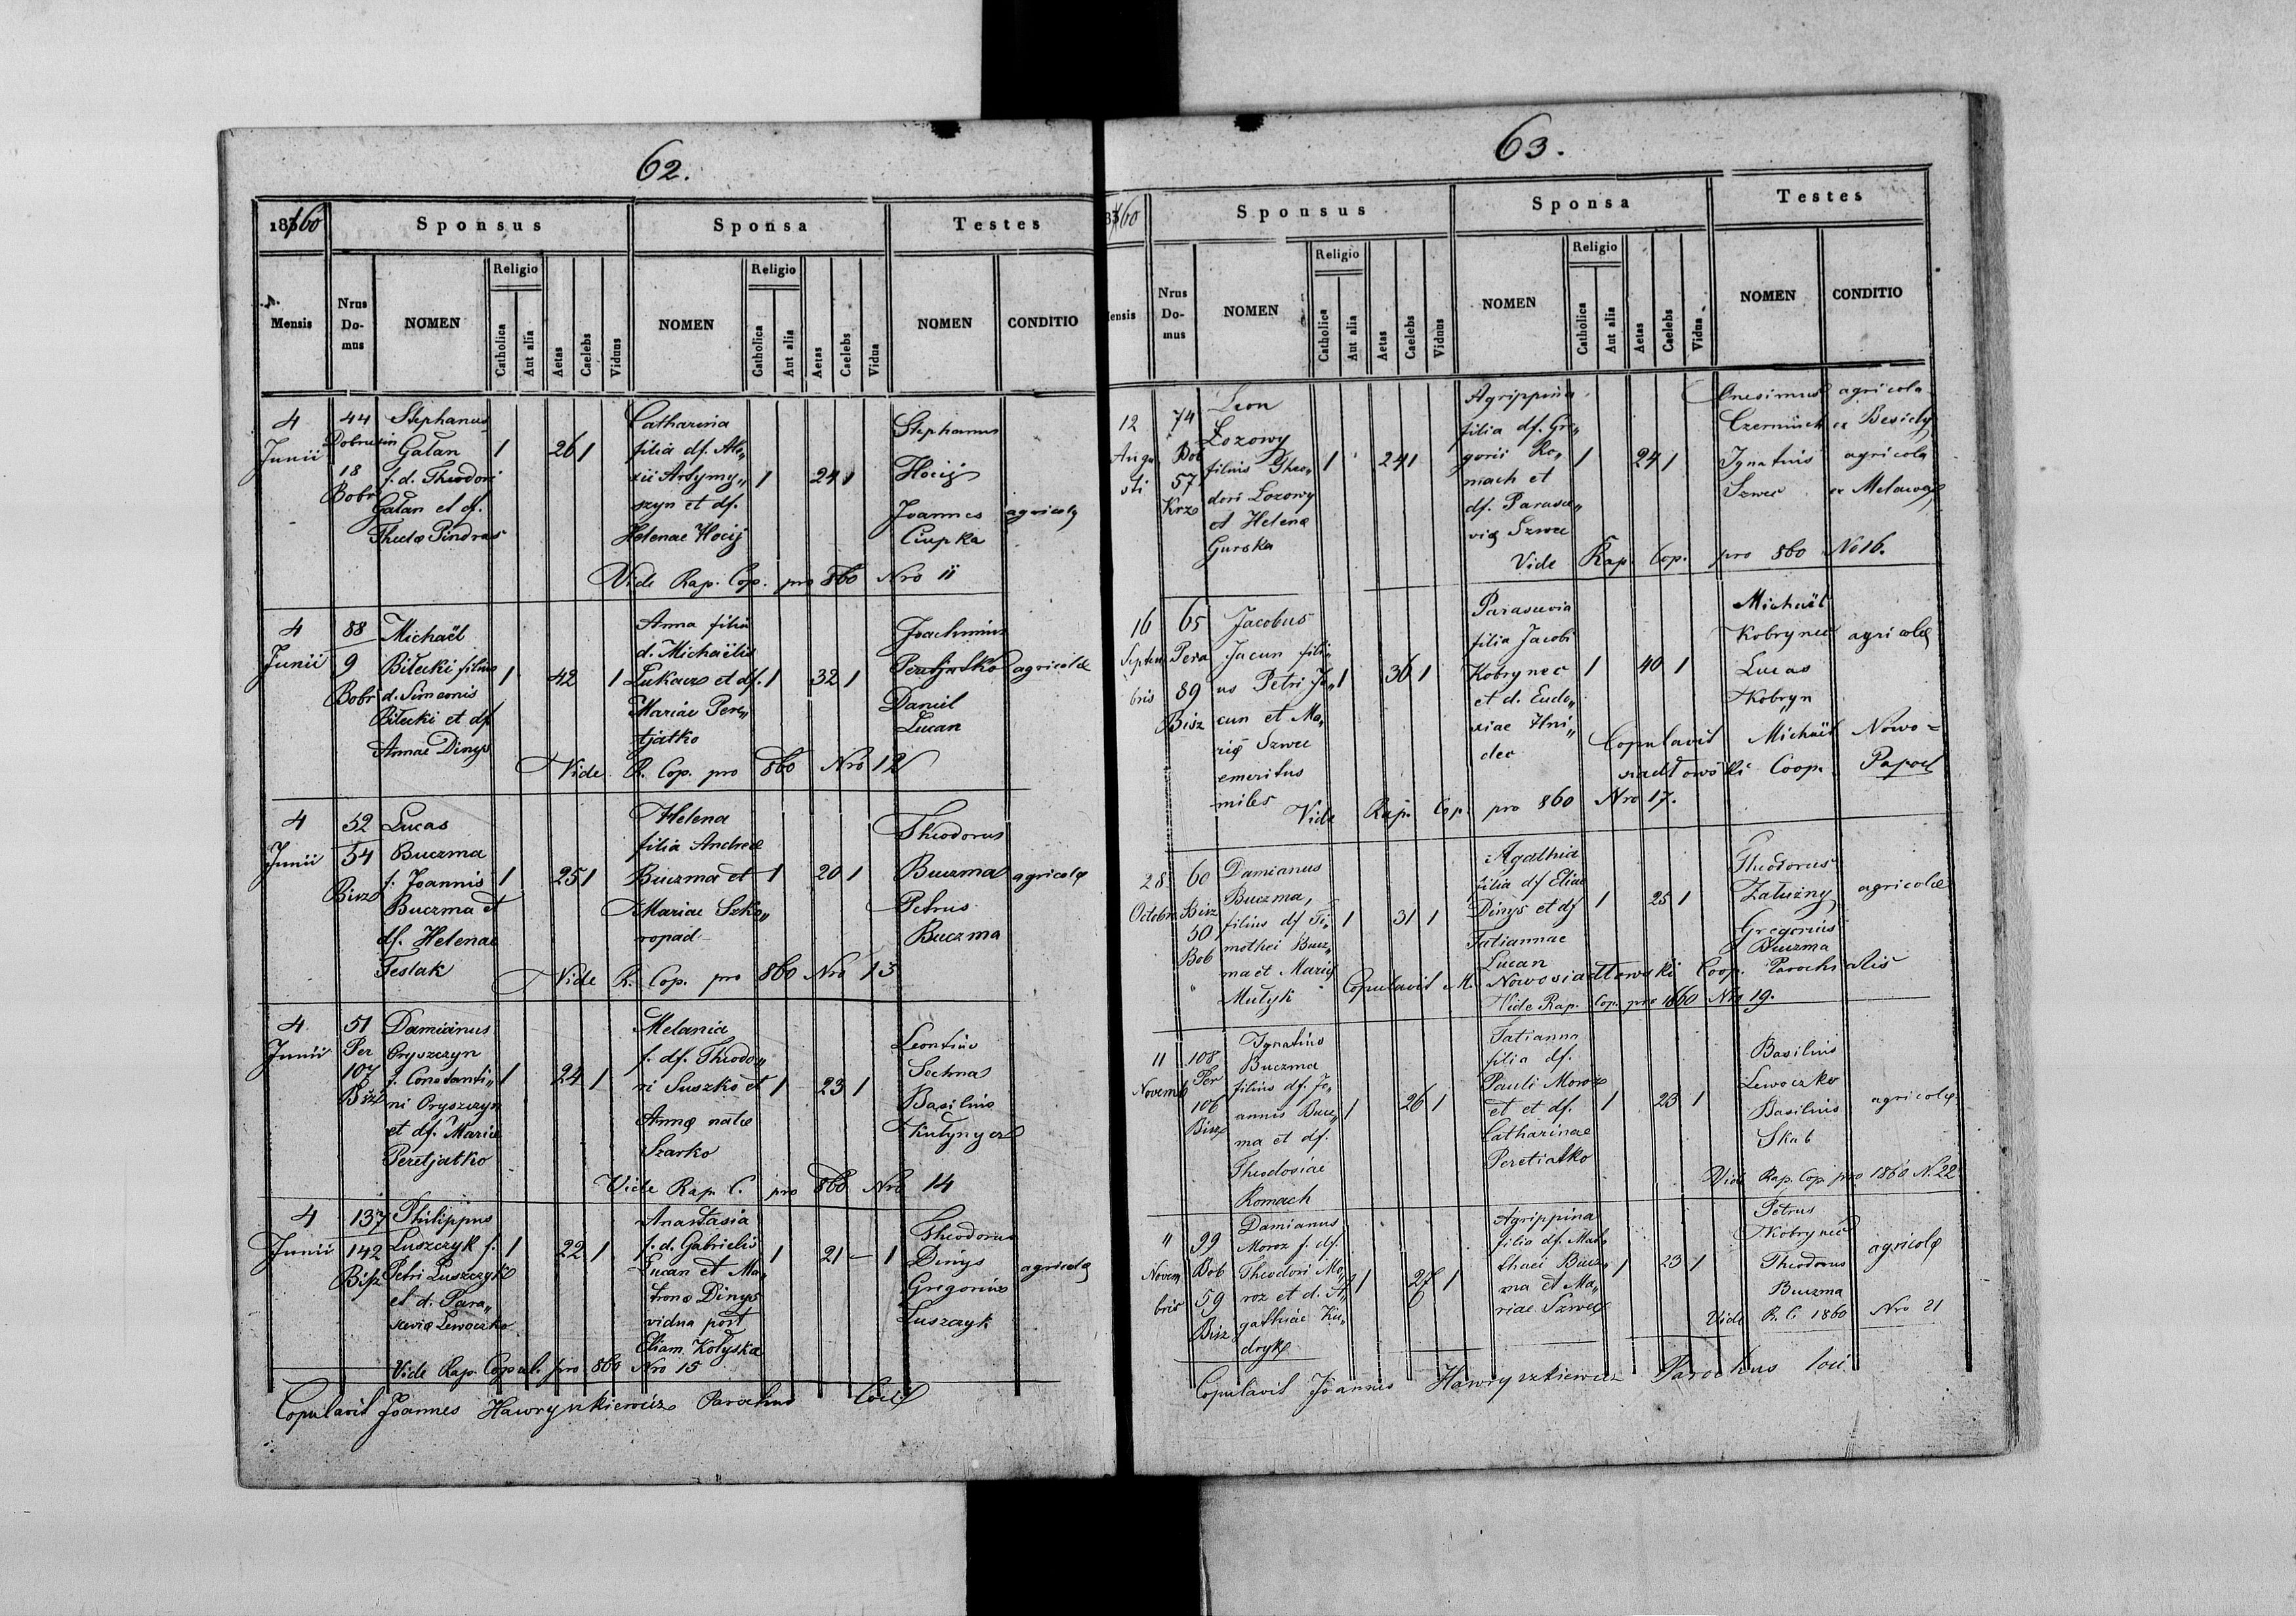 62.
1860
Sponsus
Sponsa
Testes
Mensis
Nrus Do-mus
NOMEN
Religio
Catholica
Aut alia
Aetas
Caelebs
Viduus
NOMEN
Religio
Catholica
Aut alia
Aetas
Caelebs
Vidua
NOMEN
CONDITIO
4
Junii
44
Dobrusin
18
Bobr
Stephanus
Gałan
f. d. Theodori
Gałan et df.
Theclæ Pindras
1
26
1
Catharina
filia df. Ale„
xii Artymy„
szyn et df.
Helenae Hocij
1
24
1
Stephanus
Hocij
Joannes
Ciupka
agricolę
Vide Rap. Cop. pro 860 Nro 11
4
Junii
88
9
Bobr
Michaël
Biłecki filius
d. Simeonis
Biłecki et df
Annae Dinys
1
42
1
Anna filia
d. Michaëlis
Łukacz et df.
Mariae Pere„
tjatko
1
32
1
Joachimus
Peretjatko
Daniel
Lucan
agricolæ
Vide R. Cop. pro 860 Nro 12
4
Junii
52
54
Bisz
Lucas
Buczma
f. Joannis
Buczma et
df. Helenae
Teslak
1
25
1
Helena
filia Andreæ
Buczma et
Mariae Szko„
ropad
1
20
1
Theodorus
Buczma
Petrus
Buczma
agricolę
Vide R. Cop. pro 860 Nro 13
4
Junii
51
Per
107
Bisz
Damianus
Oryszczyn
f. Constanti„
ni Oryszczyn
et df. Mariæ
Peretjatko
1
24
1
Melania
f. df. Theodo„
ri Suszko et
Annę natæ
Szarko
1
23
1
Leontius
Sechna
Basilius
Kułynycz
Vide Rap. C. pro 860 Nro 14
4
Junii
137
142
Bisz
Philippus
Łuszczyk f.
Petri Łuszczyk
et d. Para„
sceviæ Lewoczko
1
22
1
Anastasia
f. d. Gabrielis
Lucan et Ma„
tronæ Dinys
vidua post
Eliam Kołyska
1
21
—
1
Theodorus
Dinys
Gregorius
Łuszczyk
agricolę
Vide Rap. Copul. pro 860 Nro 15
Copulavit Joannes Hawryszkiewicz Parochus Loci
63.
60
Sponsus
Sponsa
Testes
ensis
Nrus Do-mus
NOMEN
Religio
Catholica
Aut alia
Aetas
Caelebs
Viduus
NOMEN
Religio
Catholica
Aut alia
Aetas
Caelebs
Vidua
NOMEN
CONDITIO
12
Augu
sti
74
Bob
57
Krz
Leon
Łozowy
filius Theo„
dori Łozowy
et Helenæ
Gurska
1
24
1
Agrippina
filia df. Gre„
gorii Ro„
mach et
df. Parasce„
vię Szwec
1
24
1
Onesimus
Czerminek
Ignatius
Szwec
agricola
ex Besidy
agricola
Vide Rap Cop. pro 860 No 16.
16
Septem
bris
65
Pera
89
Bisz
Jacobus
Jacun fili„
us Petri Ja„
cun et Ma„
rię Szwec
emeritus
miles
1
36
1
Parascevia
filia Jacobi
Kobrynec
et d. Eudo„
xiae Hni„
dec
1
40
1
Michaël
Kobrynec
Lucas
Kobryn
agricolę
Copulavit Michaël Nowo=
siadłowski Coop. Paroch
Vide Rap. Cop. pro 860 Nro 17.
28
Octobr
60
Bisz
50
Bob
Damianus
Buczma,
filius df Ti„
mothei Bucz„
ma et Marię
Mułyk
1
31
1
Agathia
filia df Eliæ
Dinys et df
Tatiannae
Lucan
1
25
1
Theodorus
Załużny
Gregorius
Buczma
agricolæ
Copulavit M. Nowosiadłowski Coop. Parochialis
Vide Rap. Cop. pro 1860 Nro 19.
11
Novemb
108
Per
106
Bisz
Ignatius
Buczma
filius df. Jo„
annis Bucz„
ma et df.
Theodosiae
Romach
1
26
1
Tatianna
filia df.
Pauli Moroz
et et df.
Catharinae
Peretiatko
1
23
1
Basilius
Lewoczko
Basilius
Skab
agricolę
Vide Rap. Cop. pro 1860 N. 22
11
Novem
bris
99
Bob
59
Bisz
Damianus
Moroz f. df.
Theodori Mo„
roz et d. A„
gathiae Ku„
dryk
1
27
1
Agrippina
filia df. Mat„
thaei Bucz„
ma et Ma„
riae Szwec
1
23
1
Petrus
Kobrynec
Theodorus
Buczma
agricolę
Vide R. C. 1860 Nro 21
Copulavit Joannes Hawryszkiewicz Parochus loci